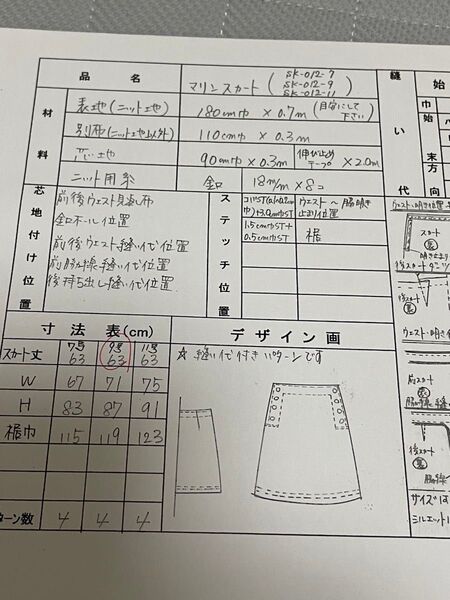 品名 マリンスカート (SK-012-7 SK-012-9 SK-012-11)
縫い代
始末
材料
表地(ニット地) 180cm巾 × 0.7m (目安にして下さい)
別布(ニット地以外) 110cm巾 × 0.3m
芯地 90cm巾 × 0.3m 伸び止めテープ × 2.0m
ニット用糸 釦 18m/m × 8コ
芯地付け位置
前後ウェスト見返し布
釦ホール位置
前後ウェスト縫い代位置
前脇線縫い代位置
後持ち出し縫い代位置
ステッチ位置
ウェスト〜脇明き止り位置
1.5cm巾ST+
0.5cm巾ST 裾
巾
始末
方向
後スカート
裏
ウェスト・明き
前スカート
裏
後スカート
裏
脇線
サイズは
シルエット
寸法表(cm)
スカート丈 7号 63 9号 63 11号 63
W 67 71 75
H 83 87 91
裾巾 115 119 123
ターン数 4 4 4
デザイン画
☆ 縫い代付きパターンです